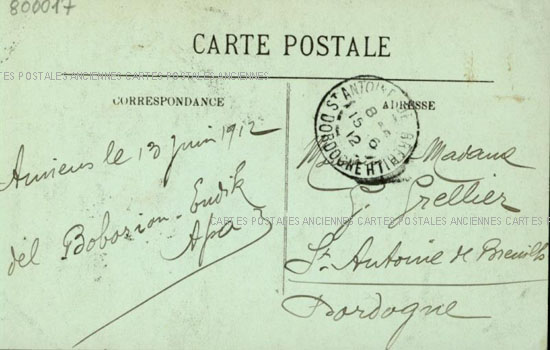 800017
CARTE POSTALE
CARTES POSTALES ANCIENNES CARTES POSTALES ANCIENNES
CORRESPONDANCE
ADRESSE
ST ANTOINE DE BREUILH
DORDOGNE
8
15 6
12
Amiens le 13 juin 1912
Madame
G. Grellier
CARTES POSTALES ANCIENNES CARTES POSTALES ANCIENNES CARTES
Apa
St Antoine de Breuilh
Dordogne